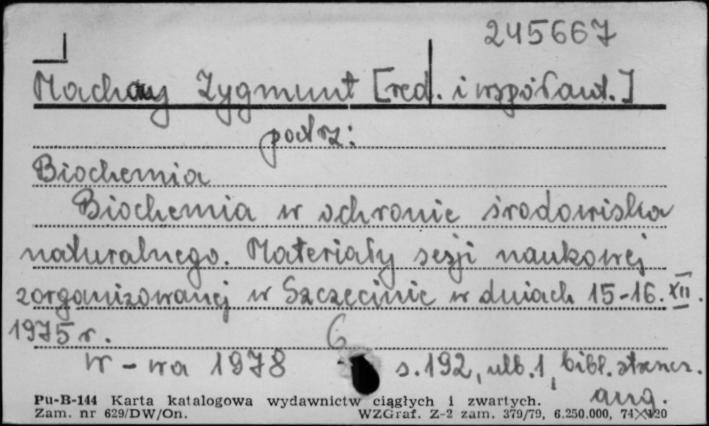 245667
Machay Zygmunt [red. i współaut.]
podrz:
Biochemia
Biochemia w ochronie środowiska
naturalnego. Materiały sesji naukowej
zorganizowanej w Szczecinie w dniach 15-16.XII.
1975 r.
W-wa 1978 s. 192, ulb. 1, bibl. streszcz.
ang.
Pu-B-144 Karta katalogowa wydawnictw ciągłych i zwartych.
Zam. nr 629/DW/On. WZGraf. Z-2 zam. 379/79, 6.250.000, 74×120